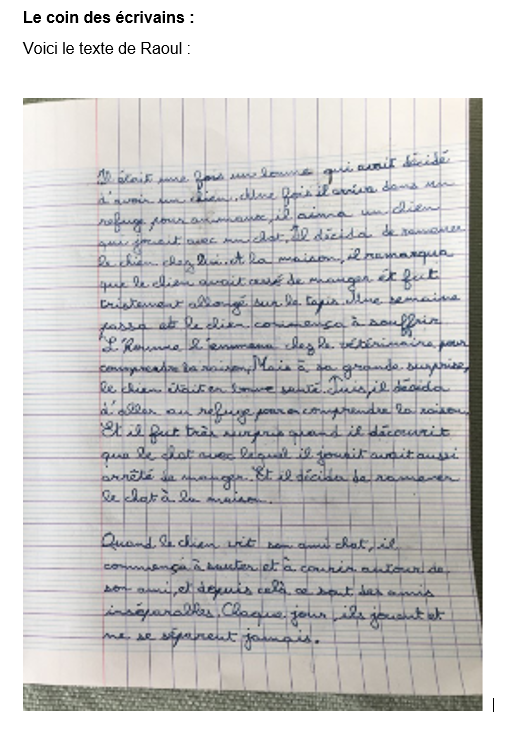 Le coin des écrivains :
Voici le texte de Raoul :
Il était une fois un homme qui avait décidé
d'avoir un chien. Une fois il arriva dans un
refuge pour animaux, il aima un chien
qui jouait avec un chat. Il décida de ramener
le chien chez lui. A la maison, il remarqua
que le chien avait cessé de manger et fut
tristement allongé sur le tapis. Une semaine
passa et le chien commença à souffrir.
L'homme l'emmena chez le vétérinaire pour
comprendre la raison. Mais à sa grande surprise,
le chien était en bonne santé. Puis, il décida
d'aller au refuge pour comprendre la raison.
Et il fut très surpris quand il découvrit
que le chat avec lequel il jouait avait aussi
arrêté de manger. Et il décida de ramener
le chat à la maison.
Quand le chien vit son ami chat, il
commença à sauter et à courir autour de
son ami, et depuis celà, ce sont des amis
inséparables. Chaque jour, ils jouent et
ne se séparent jamais.